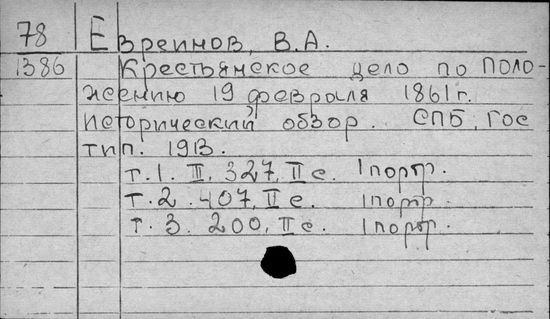 78 Евреинов, В.А.
1386 Крестьянское дело по Поло-
жению 19 февраля 1861 г.
исторический обзор. СПБ, Гос
тип. 1913.
т.1. II, 327, II с. 1 портр.
т.2. 407, II с. 1 портр.
т.3. 200, II с. 1 портр.